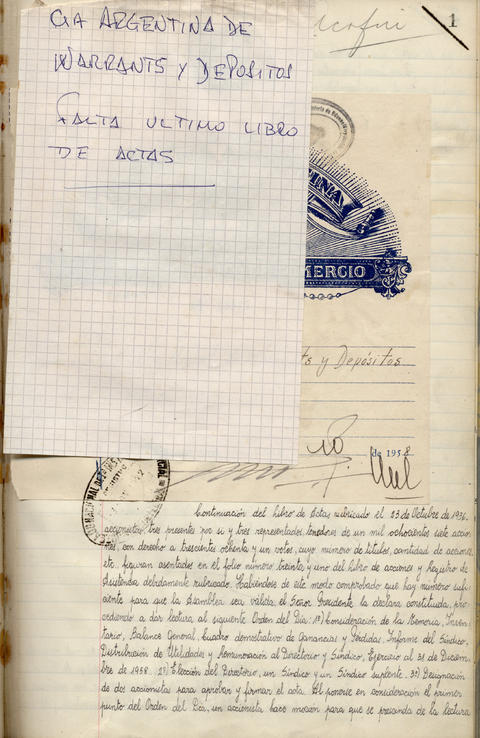 1
CIA ARGENTINA DE
WARRANTS y DEPOSITOS
FALTA ULTIMO LIBRO
DE ACTAS
MERCIO
ts y Depósitos
10
de 1958
Continuación del libro de Actas rubricado el 13 de Octubre de 1936.
accionistas, tres presentes por si y tres representados, tenedores de un mil ochocientos siete accio
nes, con derecho a trescientos ochenta y un votos, cuyo número de títulos, cantidad de acciones,
etc. figuran asentados en el folio número treinta y uno del libro de acciones y Registro de
Asistencia debidamente rubricado. Habiéndose de este modo comprobado que hay número sufi
ciente para que la Asamblea sea válida, el Señor Presidente, la declara constituída, pro
cediendo a dar lectura al siguiente Orden del Día: 1º) Consideración de la Memoria, Inven
tario, Balance General, Cuadro demostrativo de Ganancias y Pérdidas, Informe del Síndico,
Distribución de Utilidades y Remuneración al Directorio y Síndico, Ejercicio al 31 de Diciem
bre de 1958. 2º) Elección del Directorio, un Síndico y un Síndico suplente. 3º) Designación
de dos accionistas para aprobar y firmar el acta. Al ponerse en consideración el primer
punto del Orden del Día, un accionista hace moción para que se prescinda de la lectura